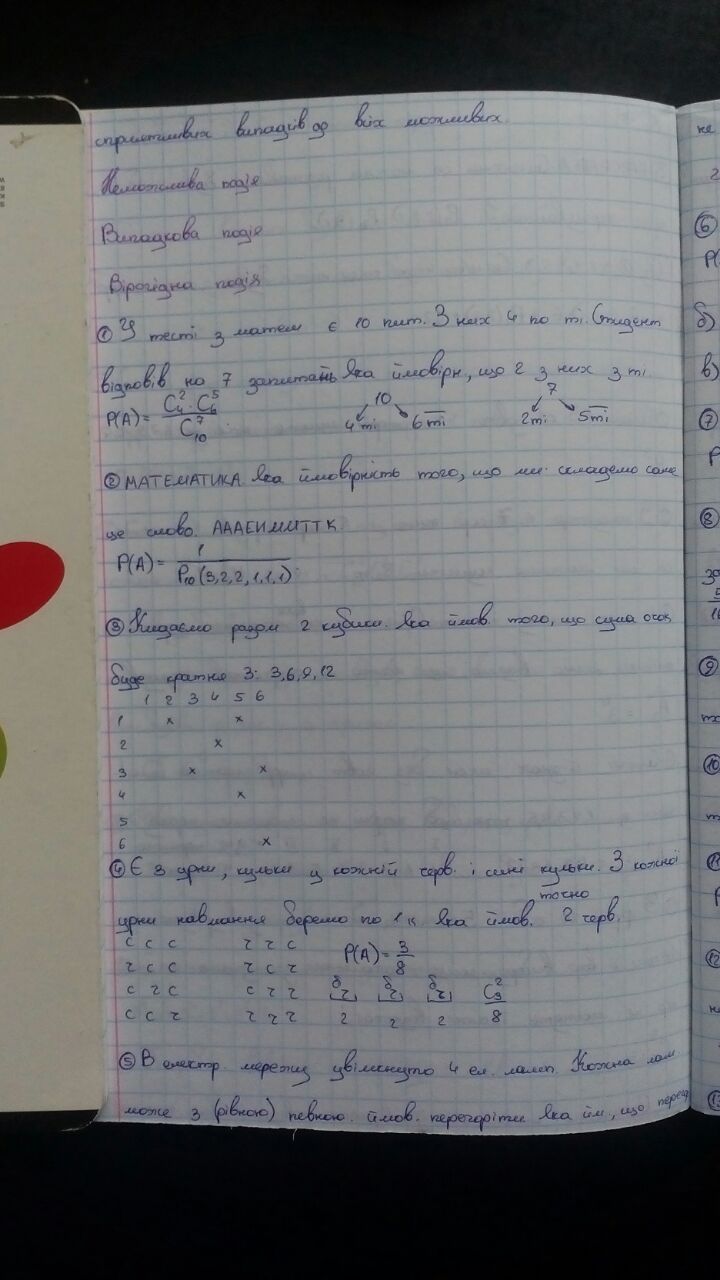 сприятливих випадків до всіх можливих.
Неможлива подія
Випадкова подія
Вірогідна подія
① У тесті з матем є 10 пит. З них 4 по ті. Студент
відповів на 7 запитань Яка ймовірн, що 2 з них з ті.
P(A) = C₄² · C₆⁵ / C₁₀⁷ 10 4 ті 6 т̅і̅ 7 2 ті 5 т̅і̅
② МАТЕМАТИКА Яка ймовірність того, що ми складемо саме
це слово. АААЕИММТТК
P(A) = 1 / P₁₀(3,2,2,1,1,1)
③ Кидаємо разом 2 кубики. Яка ймов. того, що сума очок
буде кратна 3: 3,6,9,12
1 2 3 4 5 6
1 x x
2 x
3 x x
4 x
5
6 x
④ Є 3 урни, кульки у кожній черв. і сині кульки. З кожної
точно
урни навмання беремо по 1 к. Яка ймов. 2 черв.
с с с ч ч с P(A) = 3/8
ч с с ч с ч
с ч с с ч ч C₃²/8
с с ч ч ч ч 2 2 2
⑤ В електр. мережу увімкнуто 4 ел. ламп. Кожна лам
може з (рівною) певною. ймов. перегоріти Яка йм., що перег
не
2
⑥
P(
б)
в)
⑦
P
⑧
⑨
⑩
⑪
⑫
⑬